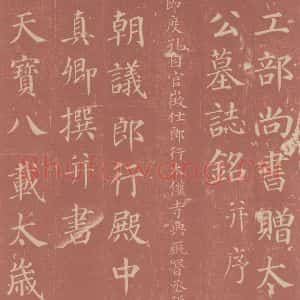 工部尚書贈太
公墓誌銘 并序
度孔目官 仕郎行太僕寺典 署丞
朝議郎行殿中
真卿撰并書
天寶八載太歲